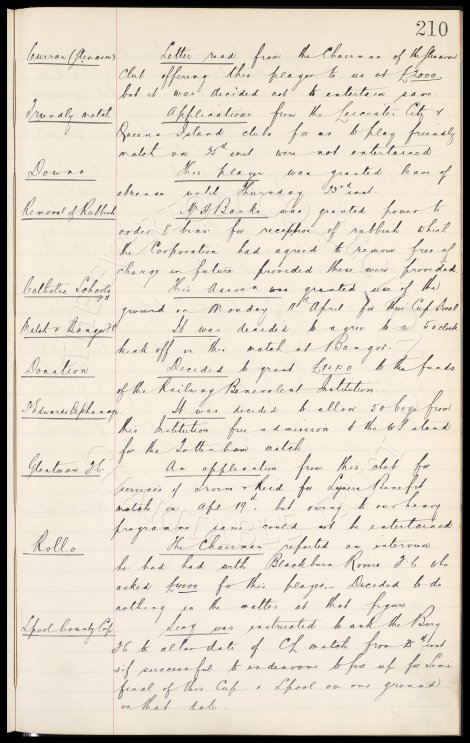 210
Curran (Glenavon) Letter read from the Chairman of the Glenavon
Club offering this player to us at £2000
but it was decided not to entertain same.
Friendly match Applications from the Leicester City &
Queens Island clubs for us to play friendly
match on 25th inst were not entertained
Downs This player was granted leave of
absence until Thursday 23rd inst.
Removal of Rubbish Mr H Banks was granted power to
order 8 bins for reception of rubbish which
the Corporation had agreed to remove free of
charge in future provided these were provided.
Catholic Schools This Assocn was granted use of the
ground on Monday April for their Cup Final
Match v Bangor FC It was decided to agree to a 5 oclock
kick off in this match at Bangor.
Donation Decided to grant £1:1:0 to the funds
of the Railway Benevolent Institution.
St Edwards Orphanage It was decided to allow 50 boys from
this Institution free admission to the stand
for the Tottenham match
Glentoran F.C. An application from this club for
services of Irvine & Reid for Lyners Benefit
match on Apl 19th but owing to our heavy
programme same could not be entertained.
Rollo The Chairman reported an interview
he had had with Blackburn Rovers F C who
asked £4000 for this player. Decided to do
nothing in the matter at that figure.
Lpool County Cup Secy was instructed to ask the Bury
FC to alter date of CL match from 25th inst
& if successful to endeavour to fix up for Semi
final of this Cup v Lpool on our ground
on that date.